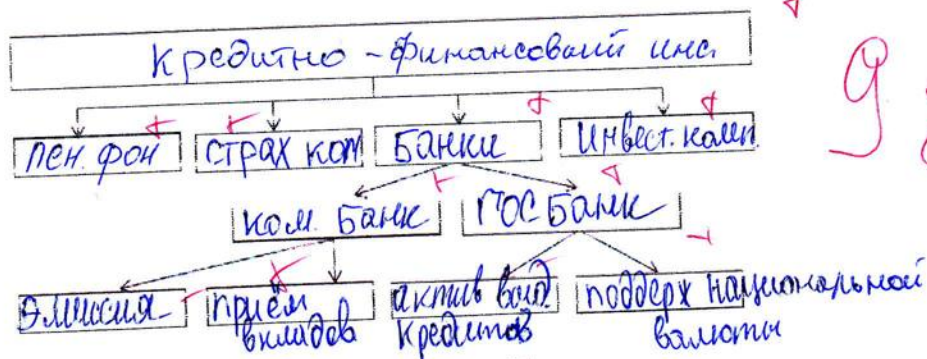 Кредитно-финансовый инс.
9
пен. фон
страх ком
Банки
Инвест. комп.
ком. Банк
ГОС Банк
Эмиссия
приём вкладов
актив выд. кредитов
поддерж национальной валюты